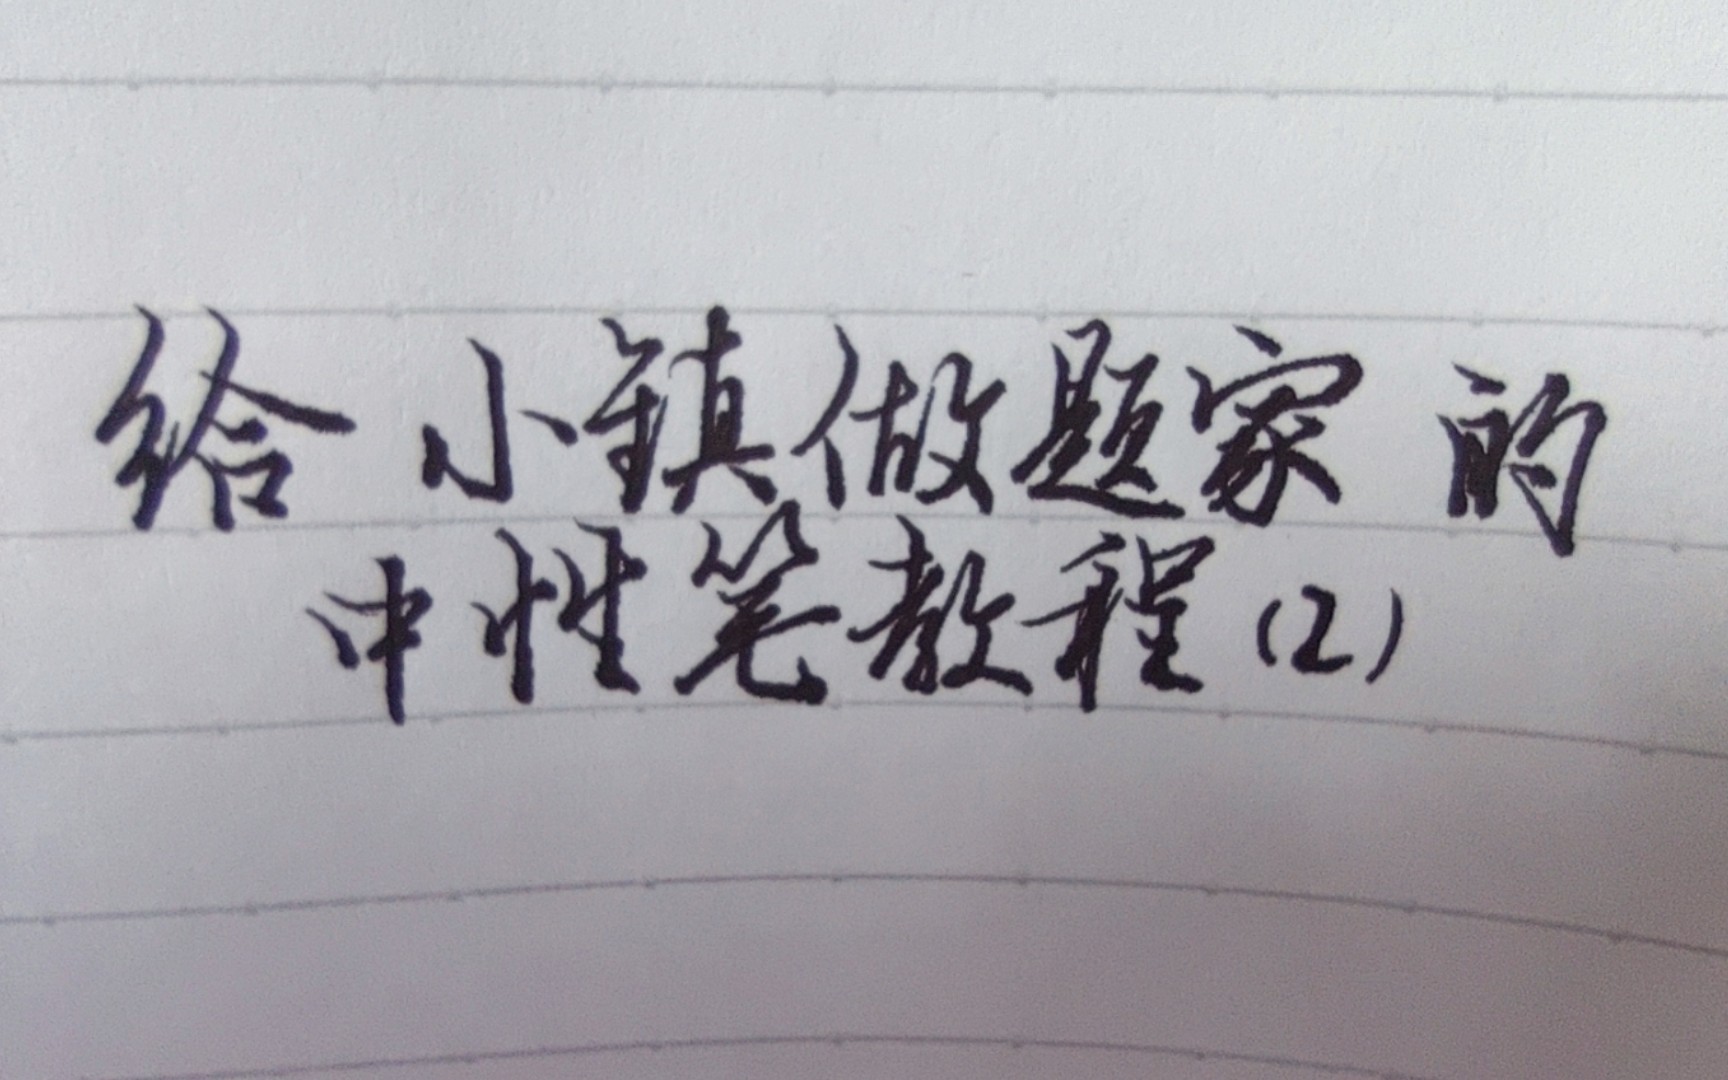 给小镇做题家的
中性笔教程(2)